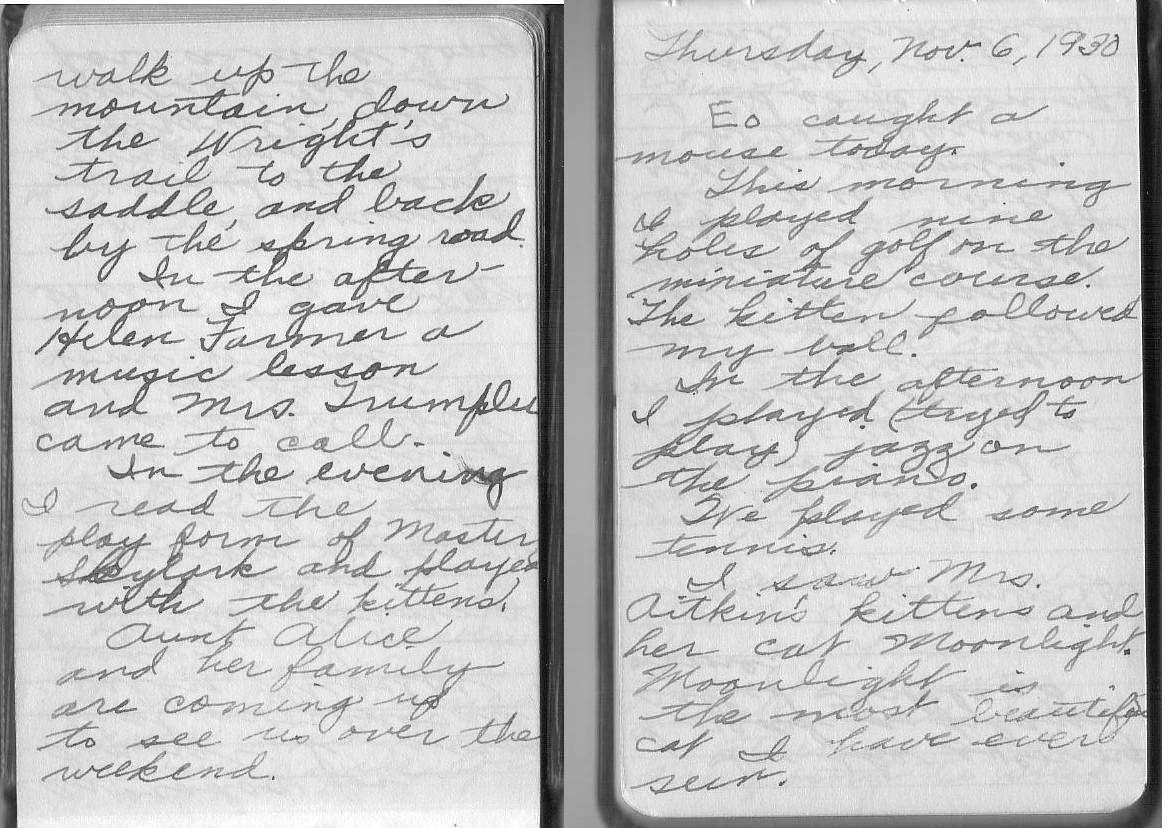 walk up the
mountain, down
the Wright's
trail to the
saddle, and back
by the spring road.
In the after-
noon I gave
Helen Farmer a
music lesson
and Mrs. Trumpler
came to call.
In the evening
I read the
play form of Master
Skylark and played
with the kittens.
Aunt Alice
and her family
are coming up
to see us over the
weekend.
Thursday, Nov. 6, 1930
Eo caught a
mouse today.
This morning
I played nine
holes of golf on the
miniature course.
The kitten followed
my ball.
In the afternoon
I played (tryed to
play) jazz on
the piano.
I've played some
tennis.
I saw Mrs.
Aitkin's kittens and
her cat Moonlight.
Moonlight is
the most beautiful
cat I have ever
seen.